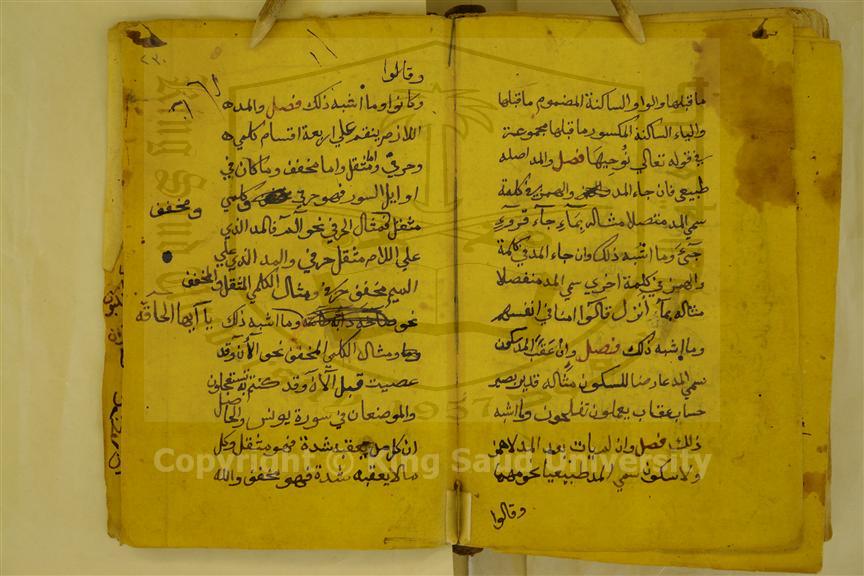 ما قبلها والواو الساكنة المضموم ما قبلها
والياء الساكنة المكسور ما قبلها مجموعة
في قوله تعالي نُوحِيهَا فصل والمد اصله
طبيعي فان جاء المد والهمز في كلمة
سمي المد متصلا مثاله بماء جآء قروء
جئ وما اشبه ذلك وان جاء المد في كلمة
والهمز في كلمة اخري سمي المد منفصلا
مثاله بمآ أنزل قالوا امنا في انفسهم
وما اشبه ذلك فصل وان عقب المد سكون
سمي المد عارضا للسكون مثاله قدير بصير
حساب عقاب يعملون تفلحون وما اشبه
ذلك فصل وان لم يات بعد المد لا همز
ولا سكون سمي المد طبيعيا نحو مهما
وقالوا
٢٣٠
وقالوا
وكانوا وما اشبه ذلك فصل والمد
اللازم ينقسم علي اربعة اقسام كلمي
وحرفي ومثقل واما مخفف وما كان في
اوايل السور فهو حرفي وكلمي
ومخفف
مثقل فمثال الحرفي نحو الٓمٓ فالمد الذي
علي اللام مثقل حرفي والمد الذي علي
الميم مخفف حرفي ومثال الكلمي المثقل
والمخفف
نحو وما اشبه ذلك يا آيها الحاقة
ومثاله الكلمي المخفف نحو الآن وقد
عصيت قبل آلآن وقد كنتم به تستعجلون
والموضعان في سورة يونس والحاصل
ان كل مد يعقبه شدة فهو مثقل وكل
ما لا يعقبه شدة فهو مخفف والله
Copyright © King Saud University
1957